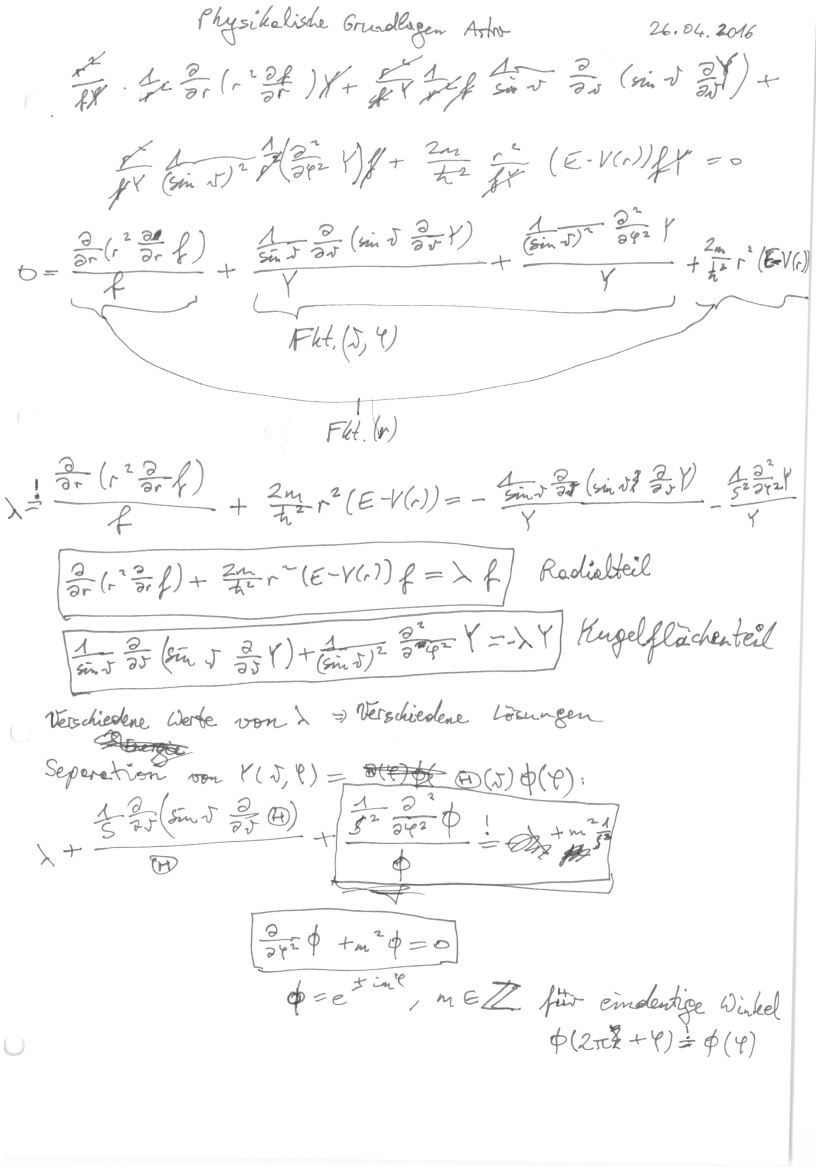 Physikalische Grundlagen Astro 26.04.2016
r²/(fY) · 1/r² ∂/∂r (r² ∂f/∂r) Y + r²/(fY) 1/r² f 1/(sin ϑ) ∂/∂ϑ (sin ϑ ∂/∂ϑ Y) +
r²/(fY) 1/(sin ϑ)² 1/r² (∂²/∂φ² Y) f + 2m/ħ² r²/(fY) (E-V(r)) fY = 0
0 = (∂/∂r (r² ∂/∂r f))/f + (1/(sin ϑ) ∂/∂ϑ (sin ϑ ∂/∂ϑ Y))/Y + (1/(sin ϑ)² ∂²/∂φ² Y)/Y + 2m/ħ² r² (E-V(r))
Fkt. (ϑ, φ)
Fkt. (r)
λ =! (∂/∂r (r² ∂/∂r f))/f + 2m/ħ² r² (E-V(r)) = - (1/(sin ϑ) ∂/∂ϑ (sin ϑ ∂/∂ϑ Y))/Y - (1/S² ∂²/∂φ² Y)/Y
∂/∂r (r² ∂/∂r f) + 2m/ħ² r² (E-V(r)) f = λ f Radialteil
1/(sin ϑ) ∂/∂ϑ (sin ϑ ∂/∂ϑ Y) + 1/(sin ϑ)² ∂²/∂φ² Y = -λ Y Kugelflächenteil
Verschiedene Werte von λ ⇒ Verschiedene Lösungen
Separation von Y(ϑ, φ) = Θ(ϑ) ϕ(φ):
λ + (1/S ∂/∂ϑ (sin ϑ ∂/∂ϑ Θ))/Θ + (1/S² ∂²/∂φ² ϕ)/ϕ =! + m² 1/S²
∂/∂φ² ϕ + m² ϕ = 0
ϕ = e^(± imφ) , m ∈ ℤ für eindeutige Winkel
ϕ(2π + φ) =! ϕ(φ)